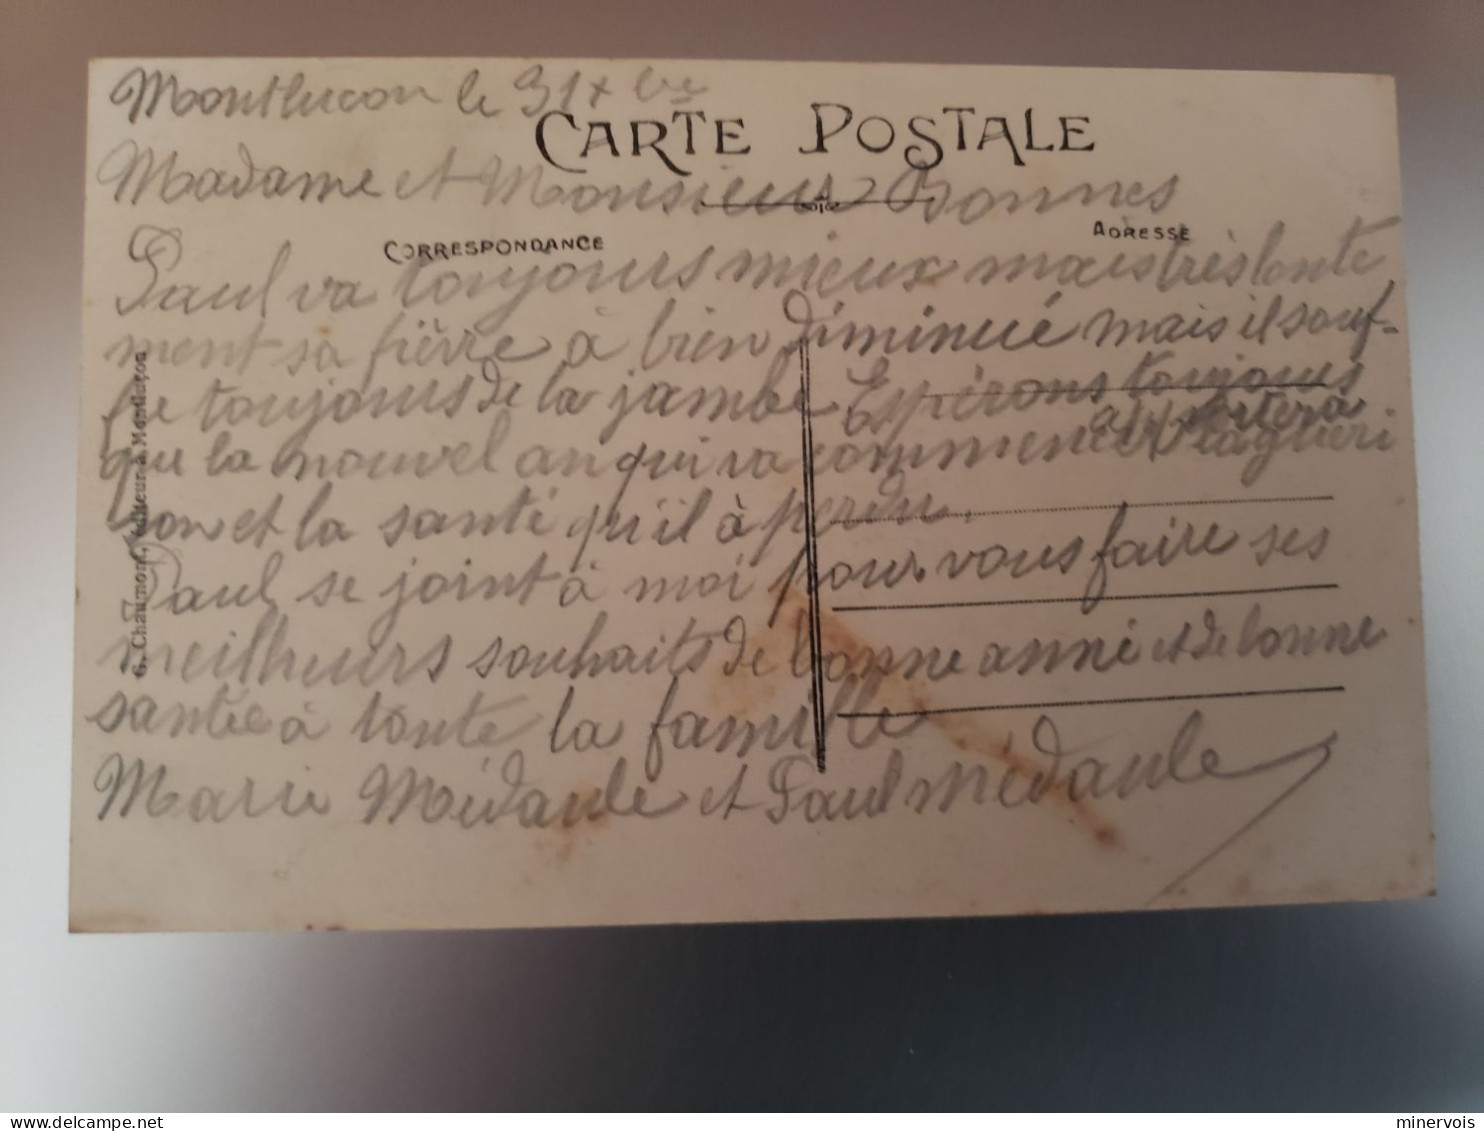 Montlucon le 31 xbre
CARTE POSTALE
Madame et Monsieur Bonnes
CORRESPONDANCE
ADRESSE
Paul va toujours mieux mais très lente
ment sa fièvre à bien diminué mais il souf-
fre toujours de la jambe Espérons toujours
que la nouvel an qui va commencer apportera la guéri
son et la santé qu'il à perdu.
Paul se joint à moi pour vous faire ses
meilheurs souhaits de bonne anné et de bonne
santée à toute la famille
Marie Médaule et Paul Médaule
G. Chaumont, éditeur à Montluçon
delcampe.net
minervois